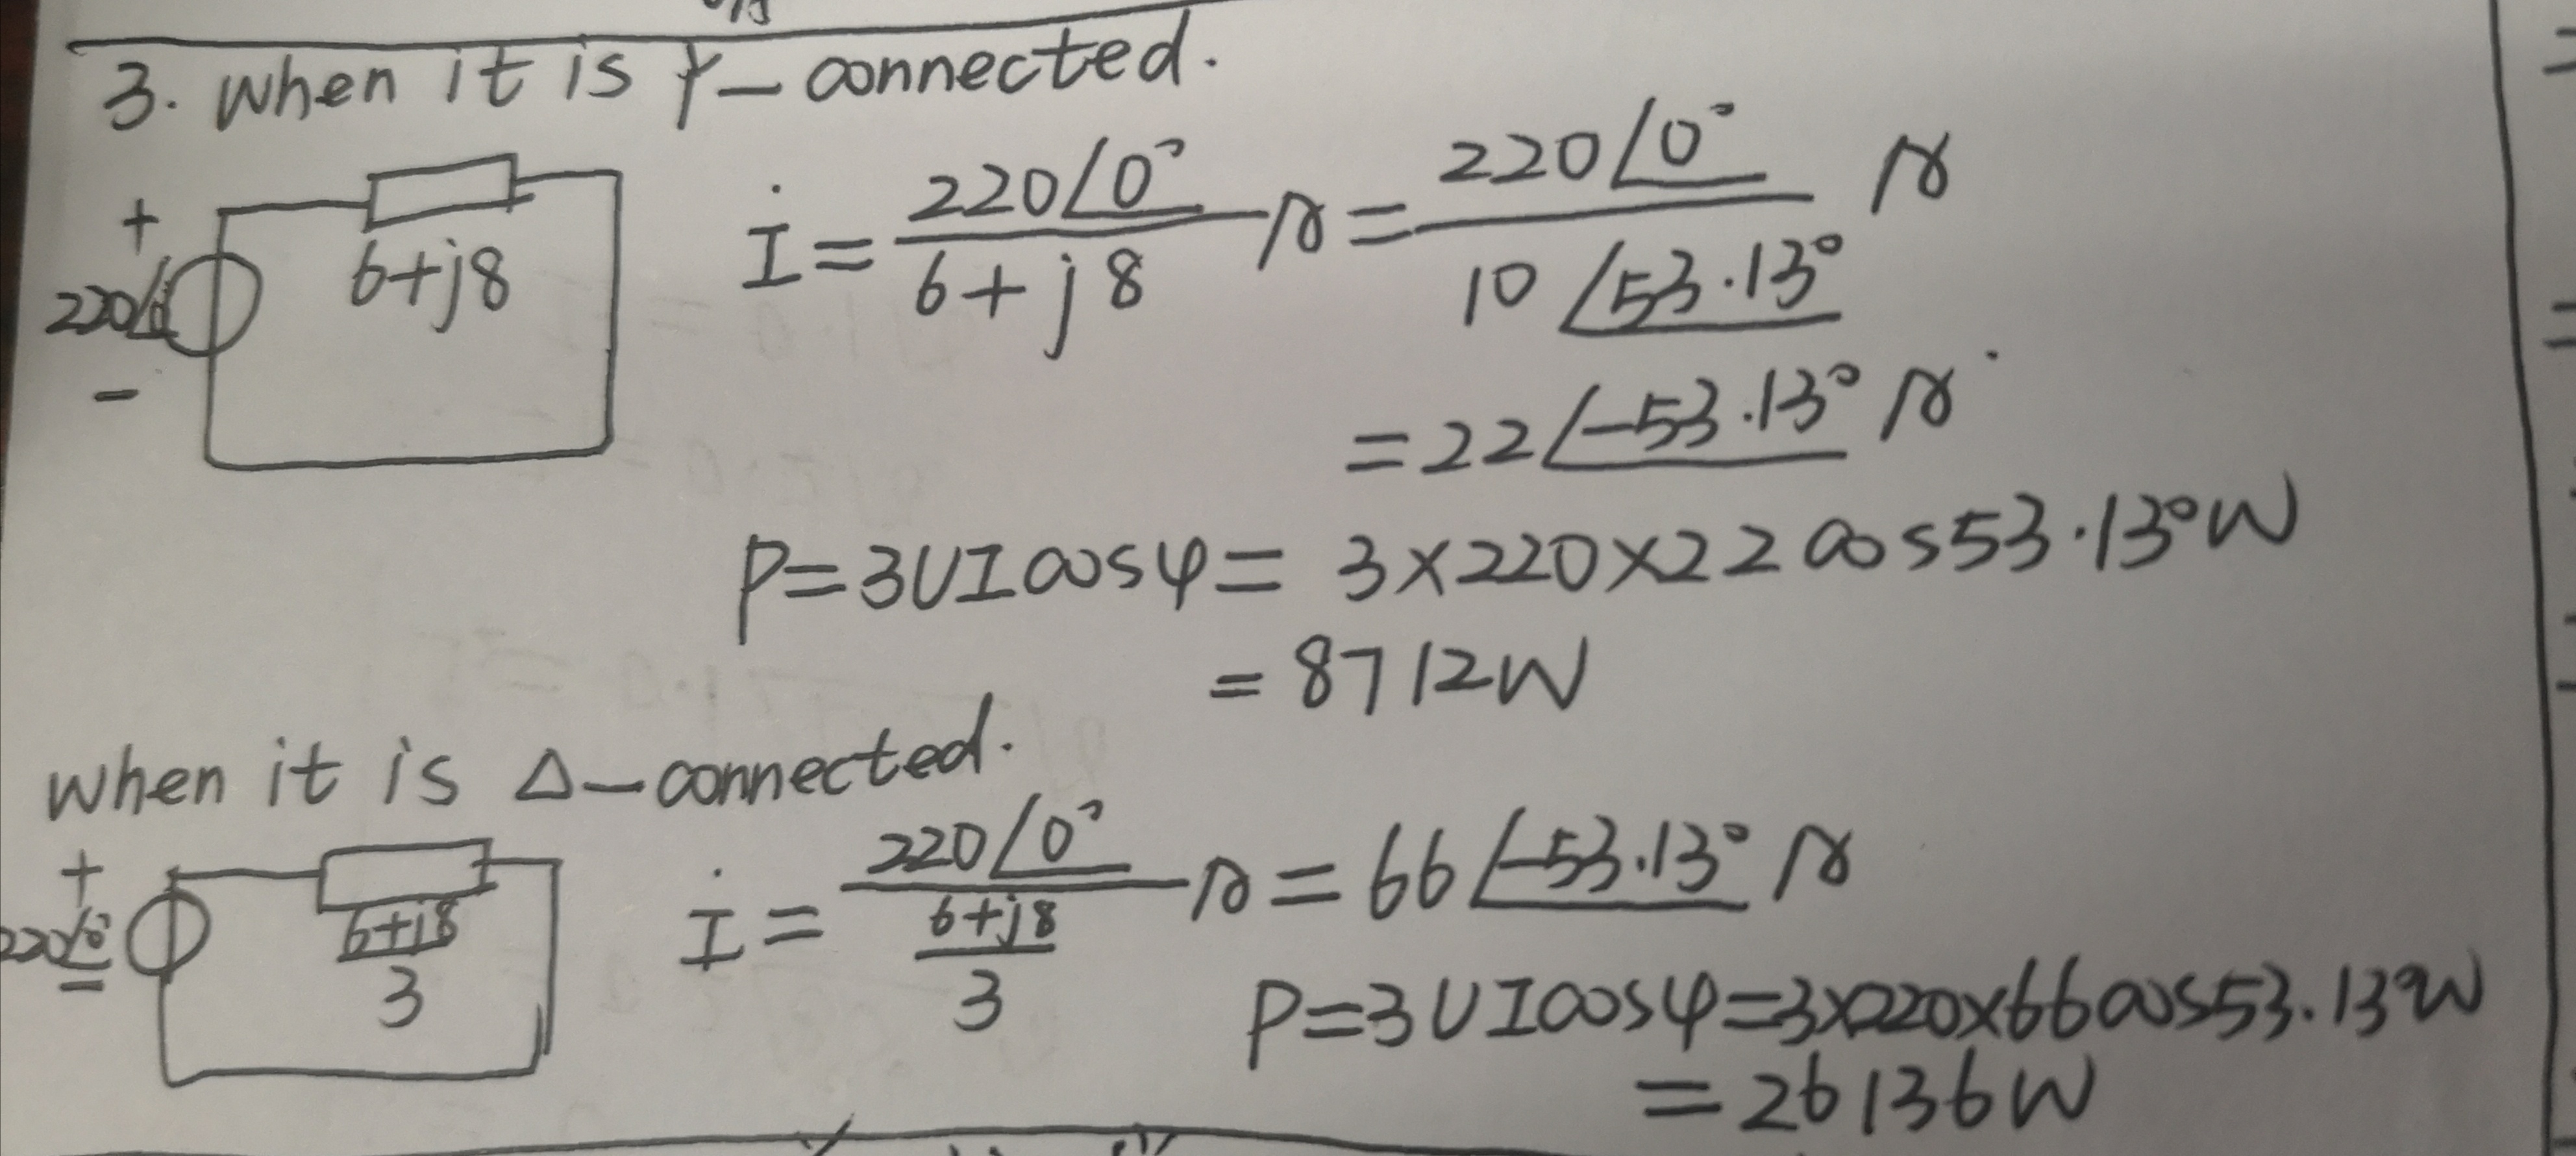 3. when it is Y-connected.
+ 220∠0° - 6+j8
İ = 220∠0° / 6+j8 A = 220∠0° / 10∠53.13° A
= 22∠-53.13° A
P=3UIcosφ = 3×220×22cos53.13°W
= 8712W
when it is Δ-connected.
+ 220∠0° - 6+j8 / 3
İ = 220∠0° / (6+j8 / 3) A = 66∠-53.13° A
P=3UIcosφ=3×220×66cos53.13°W
= 26136W